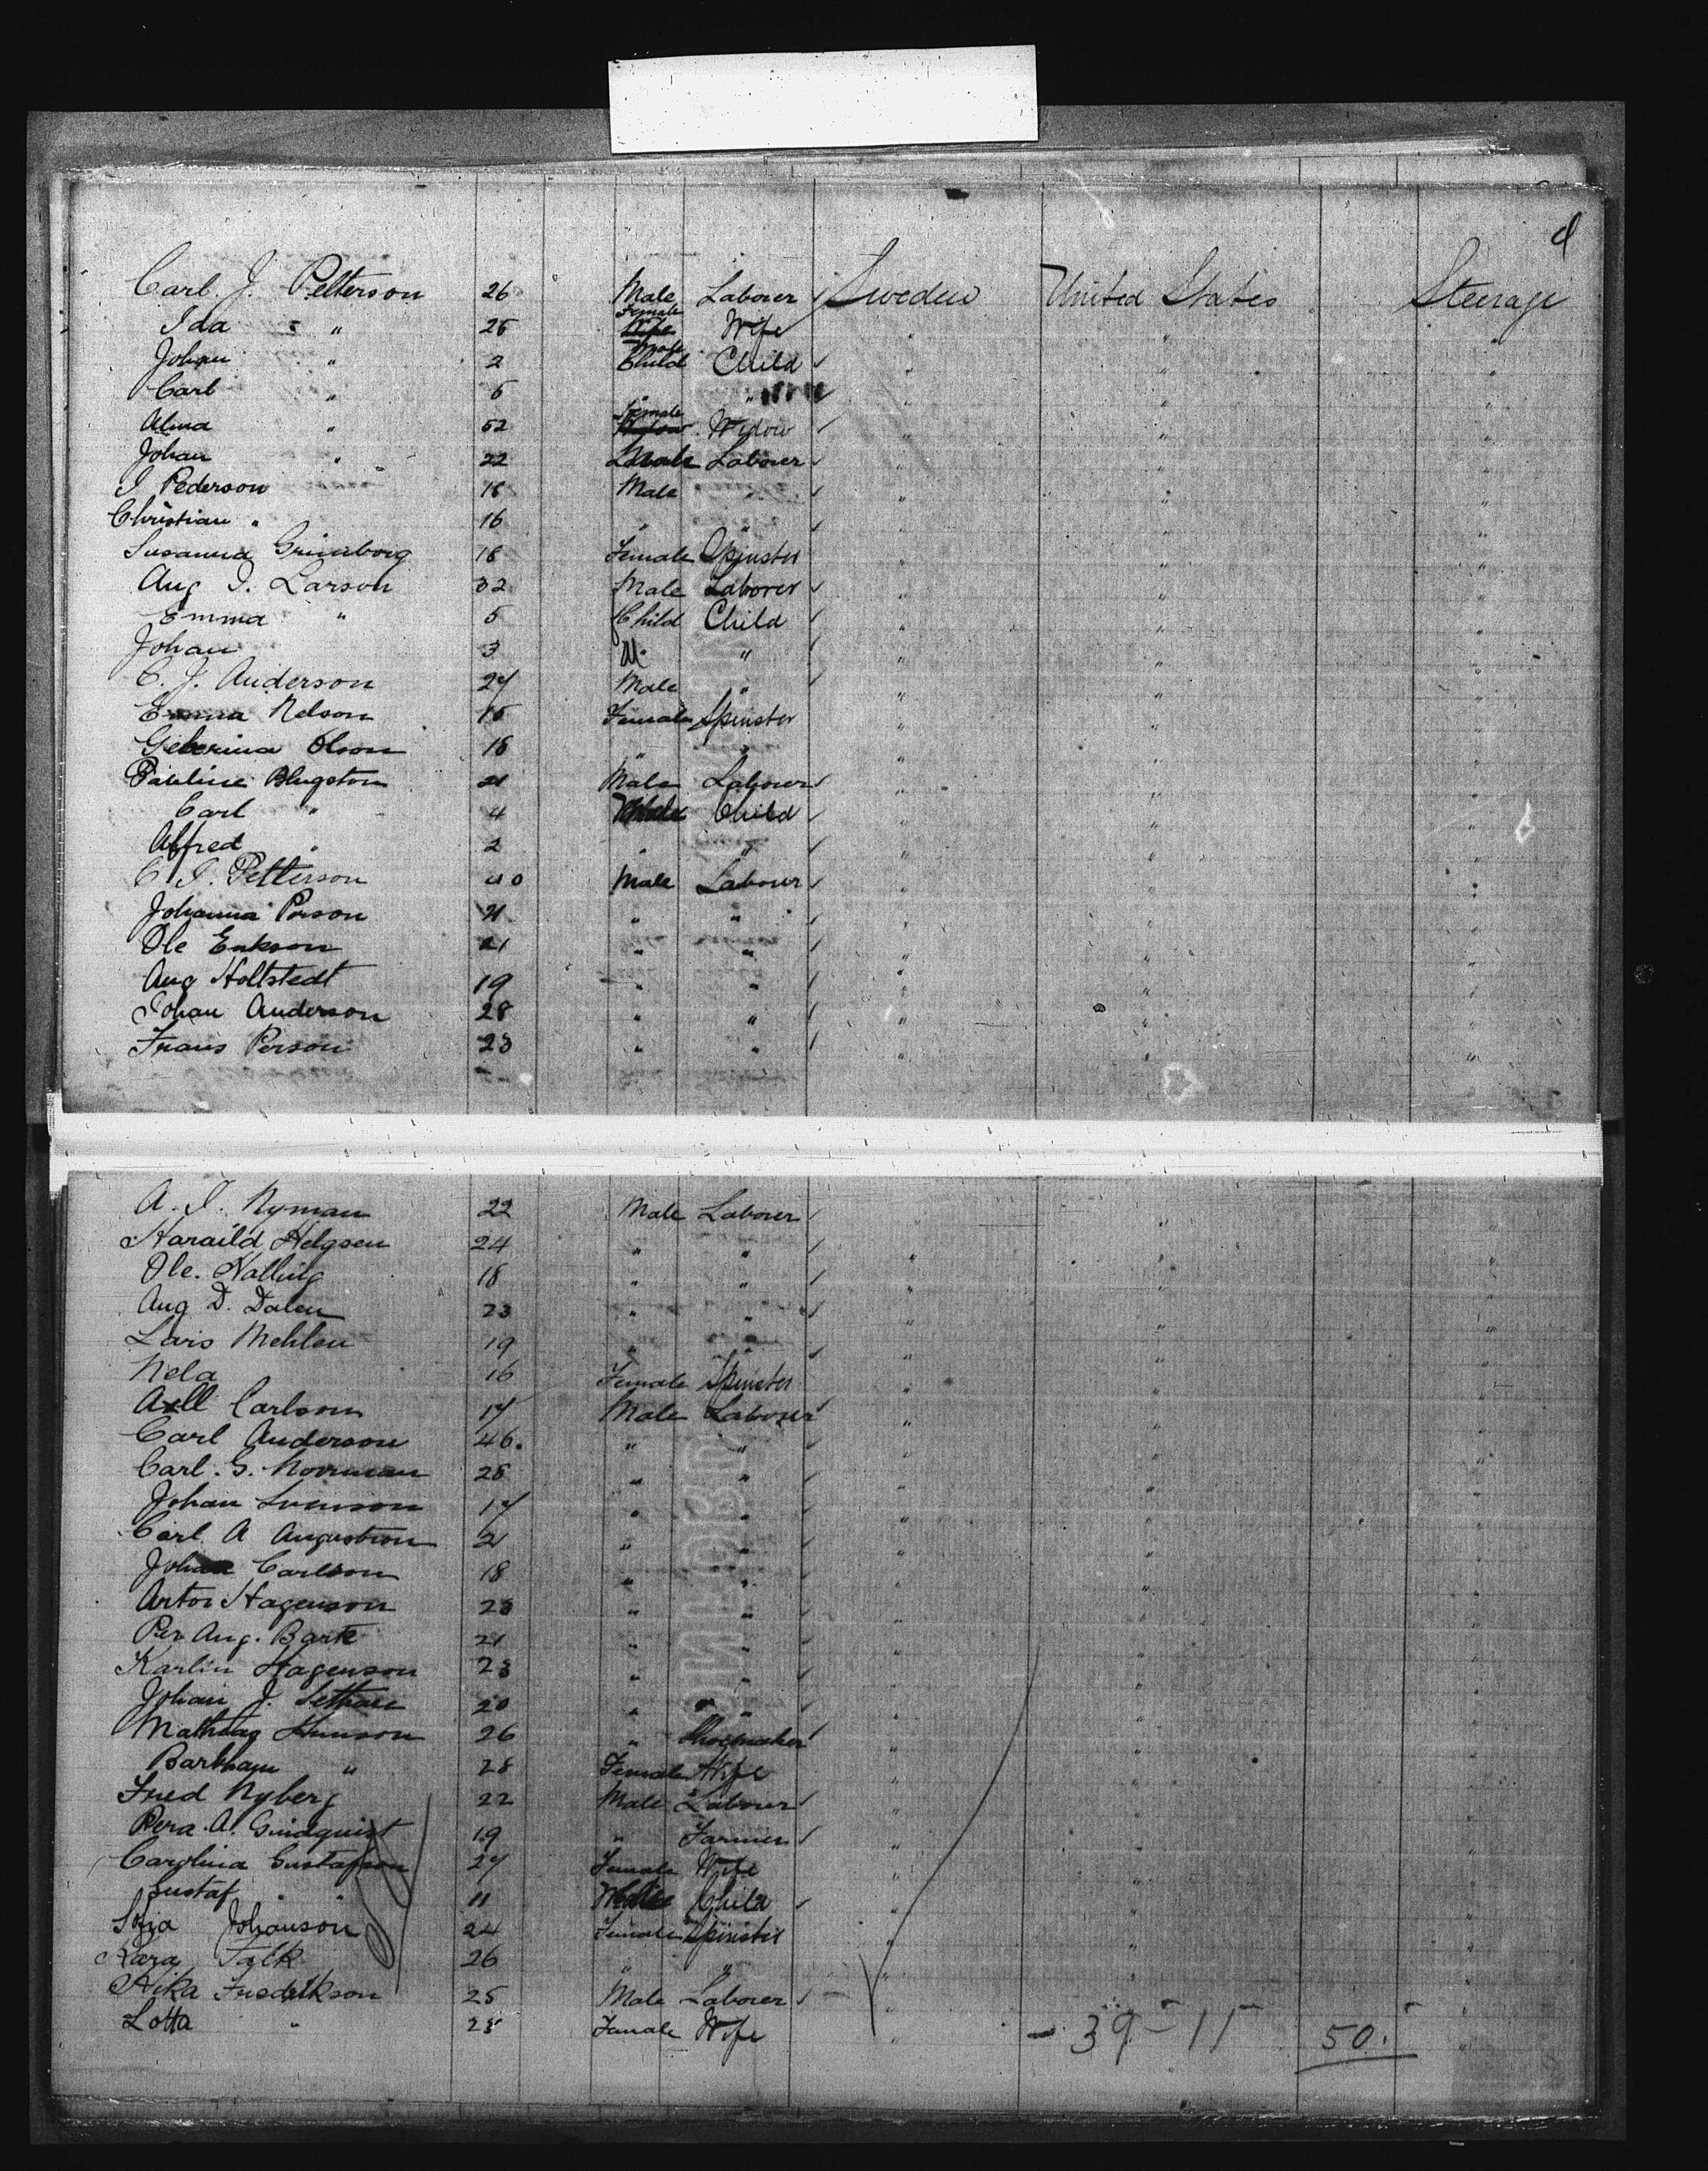 Carl J. Petterson 26 Male Laborer Sweden United States Steerage
Ida " 25 Female Wife " " "
Johan " 2 Male Child Child " " "
Carl " 5 " " " " "
Alma " 52 Female Widow " " "
Johan " 22 Male Laborer " " "
J. Pederson 18 Male " " " "
Christian " 16 " " " " "
Susanna 18 Female Spinster " " "
Aug J. Larson 32 Male Laborer " " "
Emma " 5 Child Child " " "
Johan 3 M. " " " "
C. J. Anderson 27 Male " " " "
Emma Nelson 15 Female Spinster " " "
Olson 18 " " " " "
Pauline Blugston 21 Male Labourer " " "
Carl " 4 Male Child " " "
Alfred " 2 " " " " "
C. J. Petterson 40 Male Labourer " " "
Johanna Person 21 " " " " "
Ole Erikson 21 " " " " "
Aug Holtstedt 19 " " " " "
Johan Anderson 28 " " " " "
Frans Person 23 " " " " "
A. J. Nyman 22 Male Laborer " " "
Haraild Helgsen 24 " " " " "
Ole. 18 " " " " "
Aug D. Dalen 23 " " " " "
Lars Mehlen 19 " " " " "
Nela 16 Female Spinster " " "
Axll Carlson 17 Male Labourer " " "
Carl Anderson 46. " " " " "
Carl. G. Norman 28 " " " " "
Johan Svenson 17 " " " " "
Carl A Augustson 21 " " " " "
Johan Carlson 18 " " " " "
Anton Hagenson 23 " " " " "
Per Aug. Bark 21 " " " " "
Karlin Hagenson 23 " " " " "
Johan J. 20 " " " " "
Mathias 26 " Shoemaker " " "
" 28 Female Wife " " "
Fred Nyberg 22 Male Labourer " " "
Pera A. 19 " Farmer " " "
Carolina Gustafson 27 Female Wife " " "
Gustaf " 11 Male Child " " "
Sofia Johanson 24 Female Spinster " " "
Kara Falk 26 " " " " "
Fredrikson 25 Male Laborer " "
Lotta " 25 Female Wife " - 39 - 11 50. "